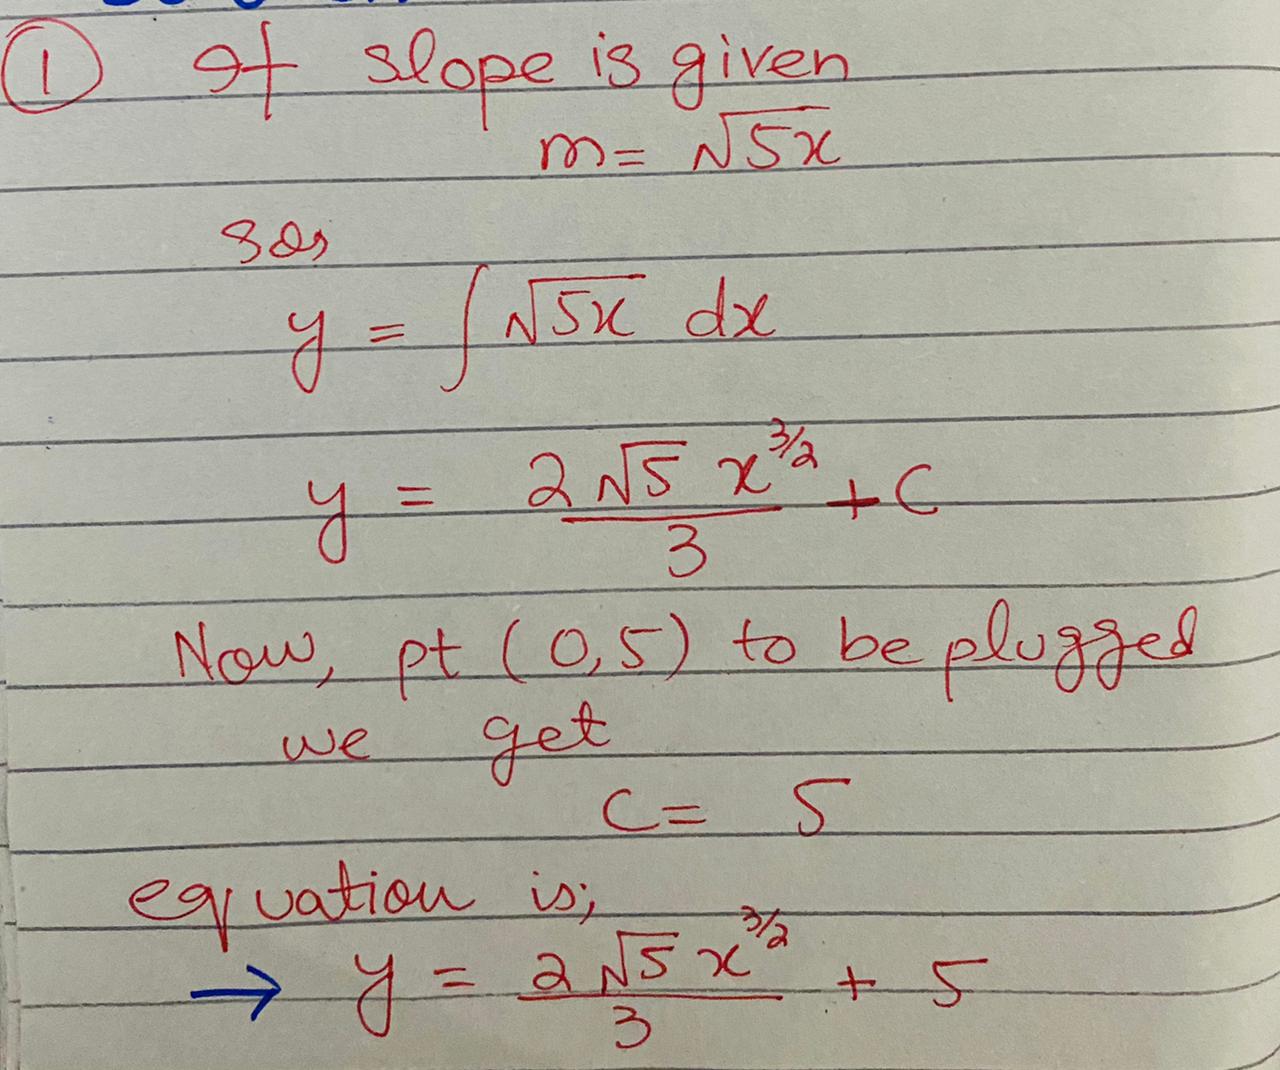 ① If slope is given
m = √5x
so,
y = ∫ √5x dx
y = 2√5 x^3/2 / 3 + C
Now, pt (0,5) to be plugged
we get
C = 5
equation is;
→ y = 2√5 x^3/2 / 3 + 5